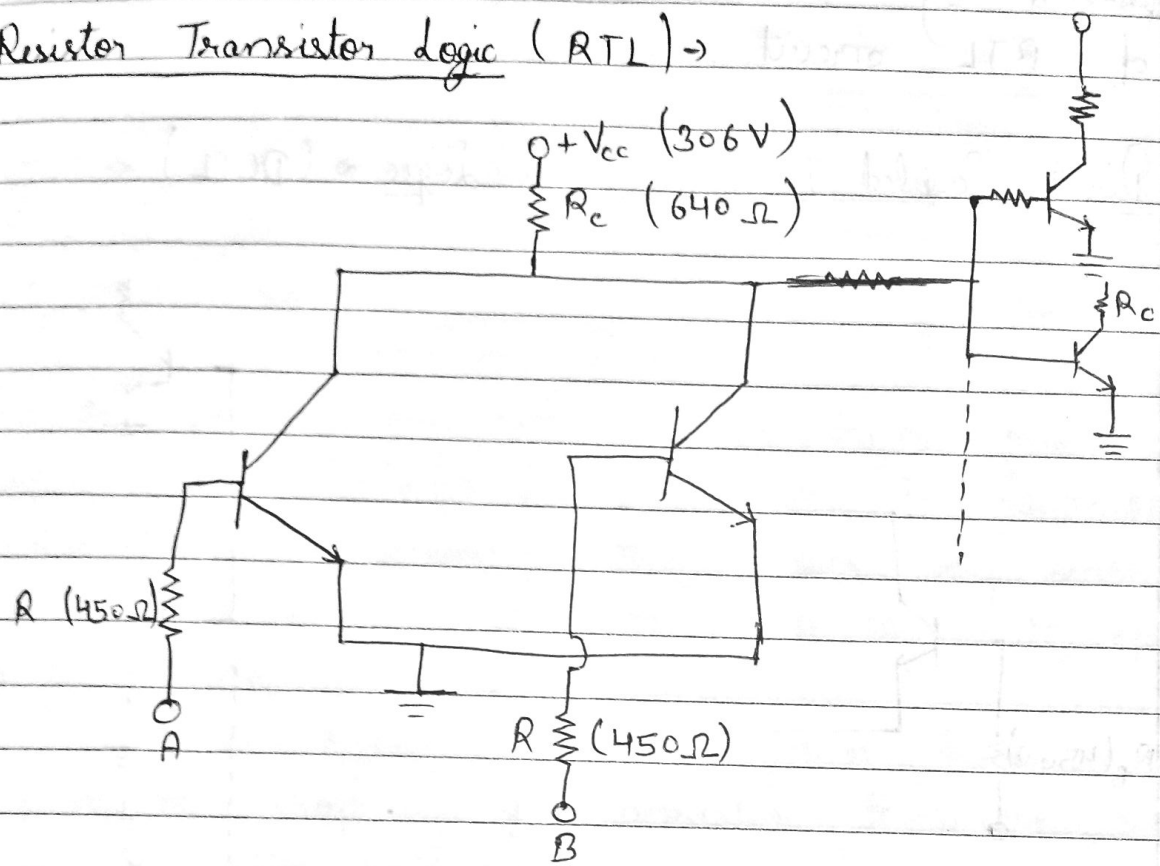 Resistor Transistor Logic (RTL) →
+Vcc (306V)
Rc (640 Ω)
Rc
R (450Ω)
A
R (450Ω)
B